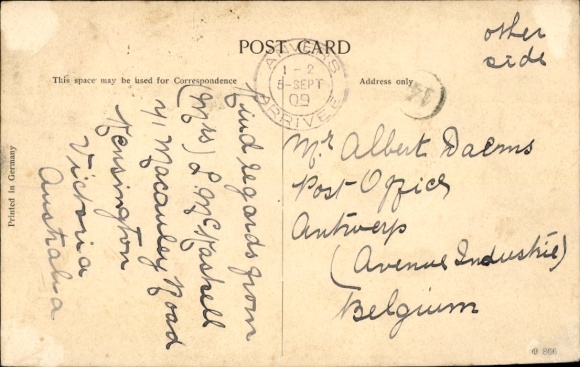 other
side
POST CARD
This space may be used for Correspondence
Address only
ANVERS
1-2
5-SEPT
09
ARRIVEE
14
Kind regards from
(Mrs) L McKaskell
71 Macaulay Road
Kensington
Victoria
Australia
Mr Albert Daems
Post Office
Antwerp
(Avenue Industrie)
Belgium
Printed in Germany
866